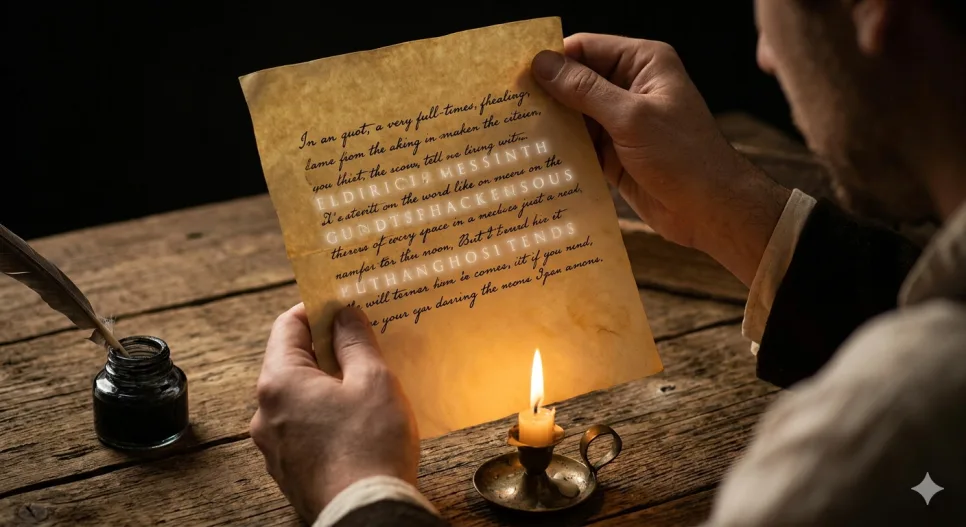 In an quot, a very full-times, fhealing,
lame from the aking in maken the citeien,
you thiet, the scow, tell we liring witn
ELDIRIC MESSINTH
It'e stevitt on the word like on meers on the
GUNDTSFHACKENSOUS
therss of every space in a mecbies just a real,
namfor tor this noon, But I terred hire it
KUTHANGHOSITENDS
will terner ham ie comes, itt if you nind,
e your eyr darring the neons Ipen amons.